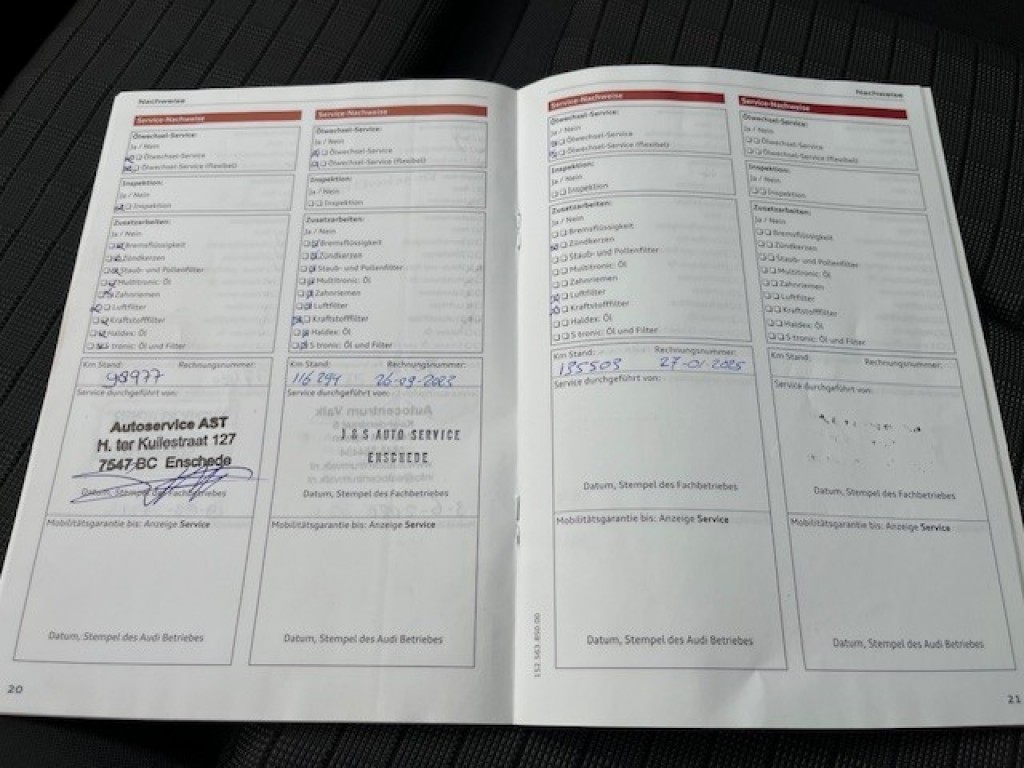 Nachweise
Service-Nachweise
Ölwechsel-Service:
Ja / Nein
Ölwechsel-Service
Ölwechsel-Service (flexibel)
Inspektion:
Ja / Nein
Inspektion
Zusatzarbeiten:
Ja / Nein
Bremsflüssigkeit
Zündkerzen
Staub- und Pollenfilter
Multitronic: Öl
Zahnriemen
Luftfilter
Kraftstofffilter
Haldex: Öl
S tronic: Öl und Filter
Km Stand: Rechnungsnummer:
98977
Service durchgeführt von:
Autoservice AST
H. ter Kuilestraat 127
7547 BC Enschede
Datum, Stempel des Fachbetriebes
Mobilitätsgarantie bis: Anzeige Service
Datum, Stempel des Audi Betriebes
20
Service-Nachweise
Ölwechsel-Service:
Ja / Nein
Ölwechsel-Service
Ölwechsel-Service (flexibel)
Inspektion:
Ja / Nein
Inspektion
Zusatzarbeiten:
Ja / Nein
Bremsflüssigkeit
Zündkerzen
Staub- und Pollenfilter
Multitronic: Öl
Zahnriemen
Luftfilter
Kraftstofffilter
Haldex: Öl
S tronic: Öl und Filter
Km Stand: Rechnungsnummer:
116294 26-09-2023
Service durchgeführt von:
J & S AUTO SERVICE
ENSCHEDE
Datum, Stempel des Fachbetriebes
Mobilitätsgarantie bis: Anzeige Service
Datum, Stempel des Audi Betriebes
Nachweise
Service-Nachweise
Ölwechsel-Service:
Ja / Nein
Ölwechsel-Service
Ölwechsel-Service (flexibel)
Inspektion:
Ja / Nein
Inspektion
Zusatzarbeiten:
Ja / Nein
Bremsflüssigkeit
Zündkerzen
Staub- und Pollenfilter
Multitronic: Öl
Zahnriemen
Luftfilter
Kraftstofffilter
Haldex: Öl
S tronic: Öl und Filter
Km Stand: Rechnungsnummer:
135503 27-01-2025
Service durchgeführt von:
Datum, Stempel des Fachbetriebes
Mobilitätsgarantie bis: Anzeige Service
Datum, Stempel des Audi Betriebes
152.563.850.00
Service-Nachweise
Ölwechsel-Service:
Ja / Nein
Ölwechsel-Service
Ölwechsel-Service (flexibel)
Inspektion:
Ja / Nein
Inspektion
Zusatzarbeiten:
Ja / Nein
Bremsflüssigkeit
Zündkerzen
Staub- und Pollenfilter
Multitronic: Öl
Zahnriemen
Luftfilter
Kraftstofffilter
Haldex: Öl
S tronic: Öl und Filter
Km Stand: Rechnungsnummer:
Service durchgeführt von:
Datum, Stempel des Fachbetriebes
Mobilitätsgarantie bis: Anzeige Service
Datum, Stempel des Audi Betriebes
21